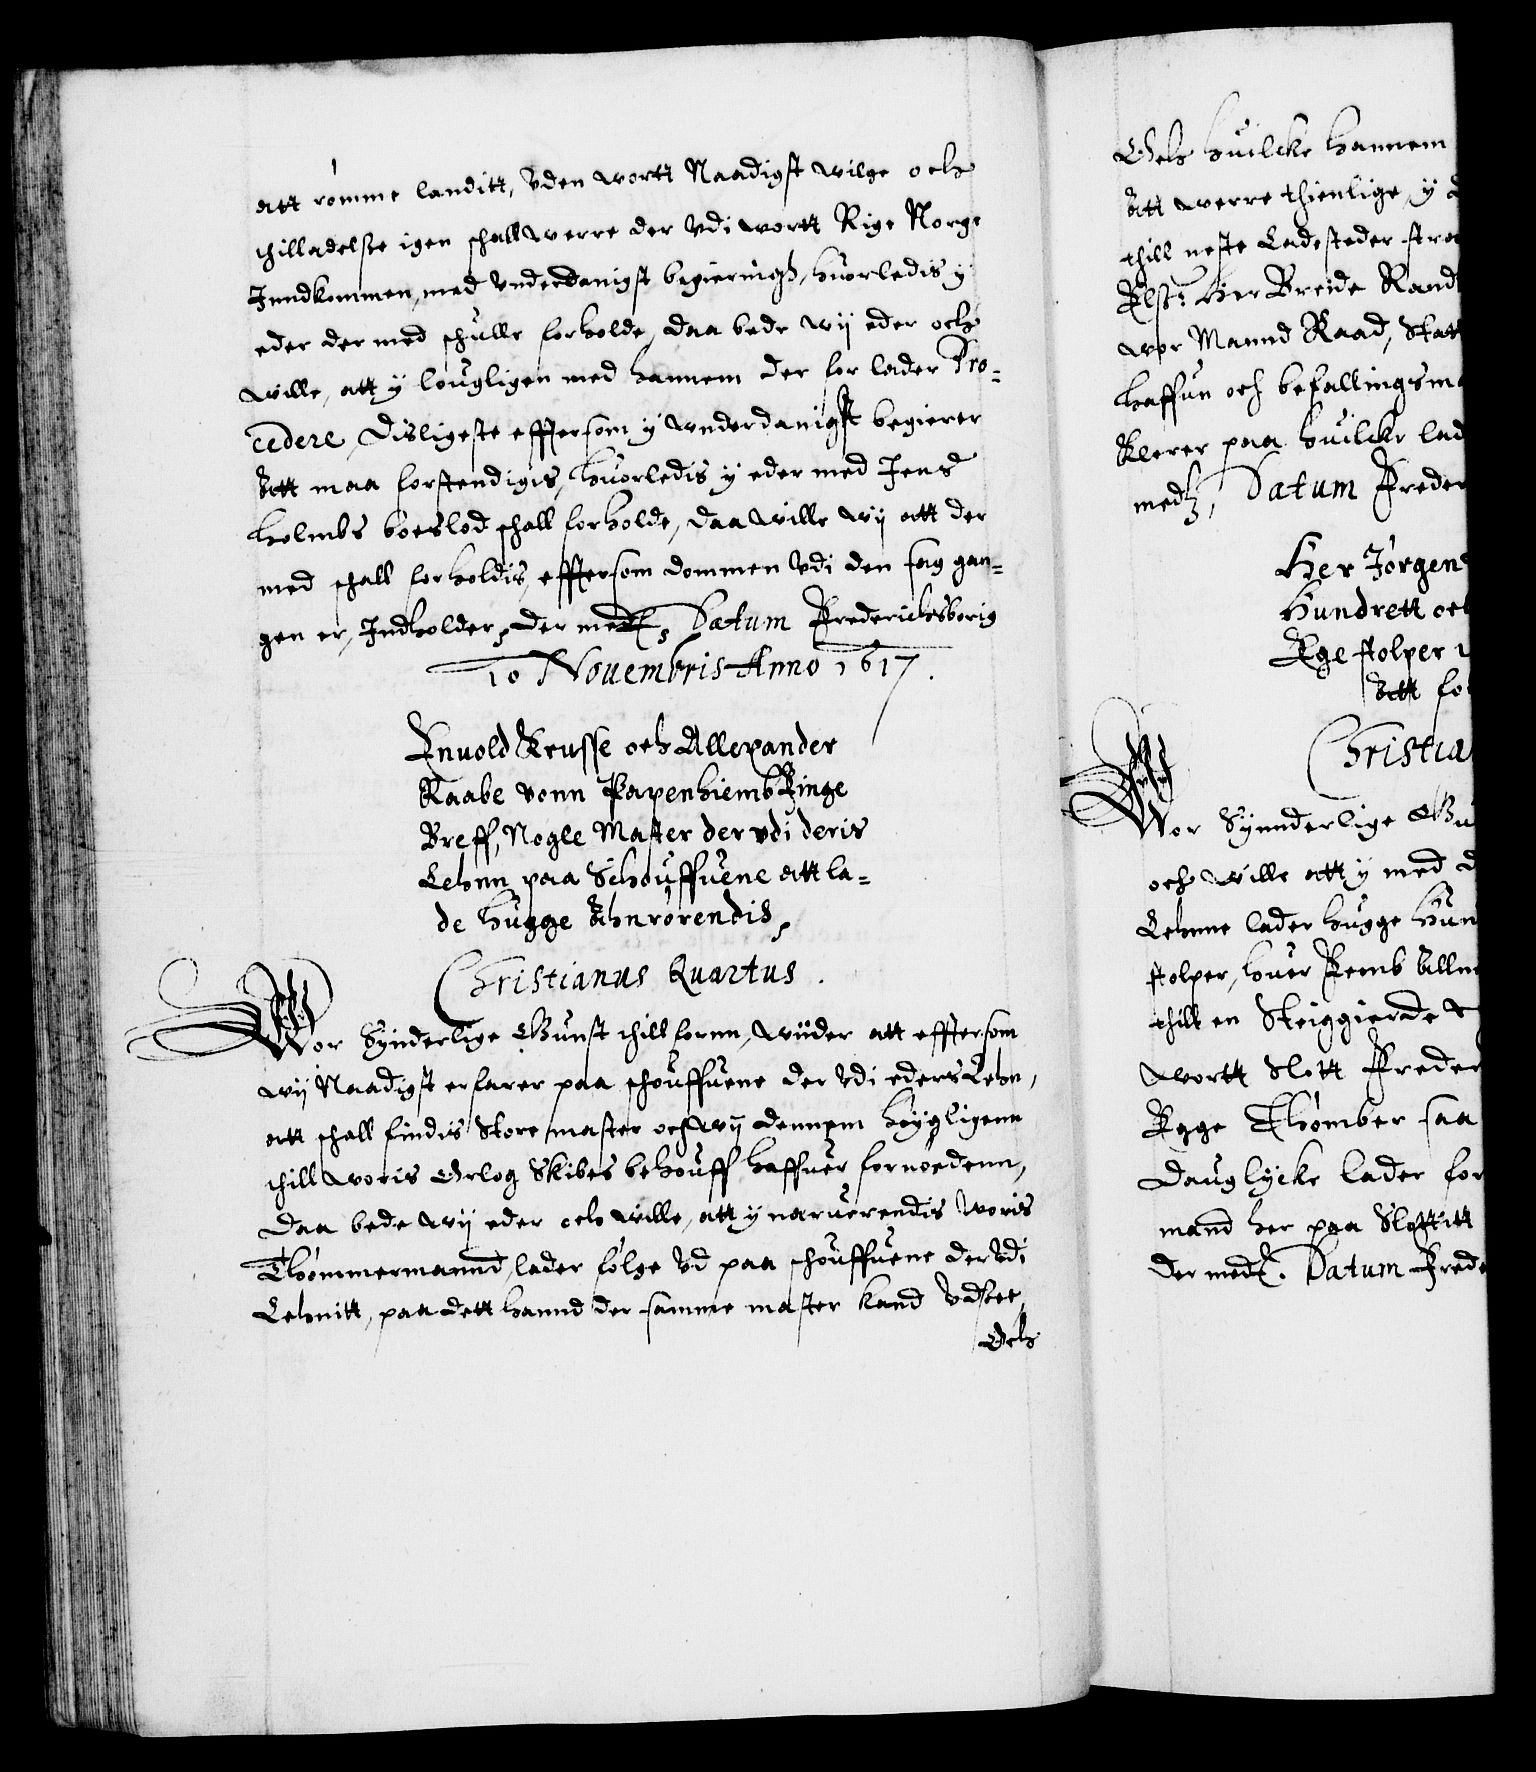 att römme landitt, vden wortt Naadigst wilge och
thilladelsse igen schall werre der vdi wortt Rige Norge
Inndkommen, med vnderdanigst begieringh, huorledis y
eder der med schulle forholde, daa bede wy eder och
wille, att y lougligen med hannem der for lader Pro-
cedere, Disligeste effter som y wnderdanigst begierer
Att maa forstendigis, huorledis y eder med Jens
Holmbs boeslod schall forholde, daa wille wy att der
med schall forholdis, effter som dommen vdi den sag gan-
gen er, Indholder, Der med, Datum Frederichsborig
10 Nouembris Anno 1617.
Enuold Krusse och Allexander
Raabe vonn Papenhiemb Finge
Breff, Nogle Master der vdi deris
Lehnn paa Schouffuene att la-
de hugge Ahnrörendis,
Christianus Quartus.
Wor Synderlige Gunst thillfornn, Wiider att effter som
wy Naadigst erfarer paa schouffuene der vdi eders Lehn,
att schall findis Store master och wy dennem höygligenn
thill woris Orlog Skibes behouff haffuer fornöedenn,
Daa bede wy eder och wille, att y naruerendis Woris
Thömmermannd, lader fölge vd paa schouffuene der vdi
Lehnitt, paa dett hannd der samme master kand vdsee,
Och
Och huilcke hannem
Att werre thienlige, y
thill neste Ladesteder
Elsk: Her Breide Rand
wor Mannd Raad, Statt
Haffun och befallingsm
Klerer paa huilcke lad
med, Datum Freder
Her Jörgen
Hundrett och
Ege stolper
Att fo
Christia
Wor Synnderlige Gu
och wille att y med
Lehnne lader hugge Hun
stolper, huer Femb Allne
thill en Steiggierde
wortt Slott Freder
Egge Thömber saa
dauglycke lader for
mand her paa Slottitt
Der med. Datum Frede